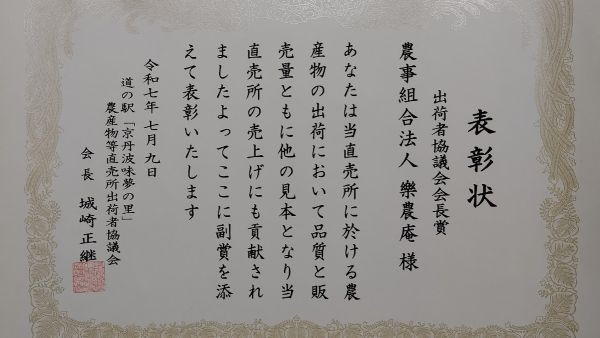 表彰状
出荷者協議会会長賞
農事組合法人 樂農庵 様
あなたは当直売所に於ける農
産物の出荷において品質と販
売量ともに他の見本となり当
直売所の売上げにも貢献され
ましたよってここに副賞を添
えて表彰いたします
令和七年七月九日
道の駅「京丹波味夢の里」
農産物等直売所出荷者協議会
会長 城崎正継